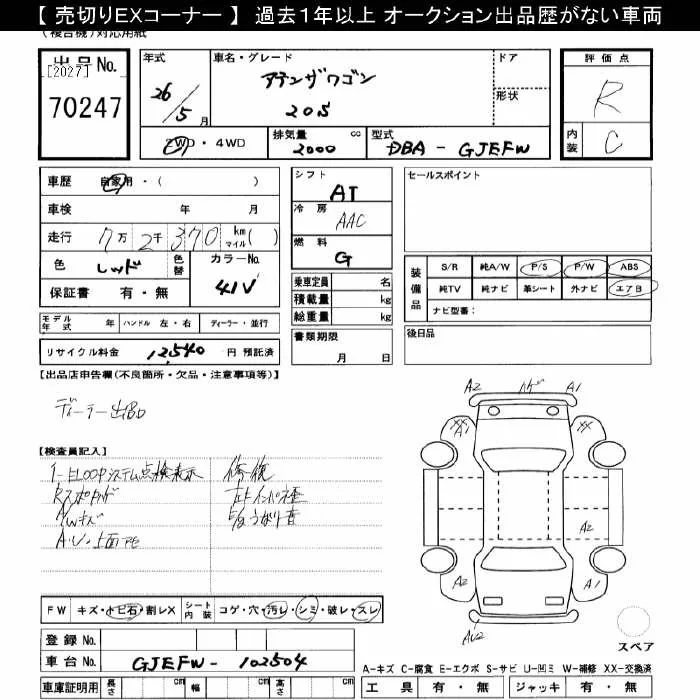 【 売切りEXコーナー 】 過去1年以上 オークション出品歴がない車両
(複合機)対応用紙
出品No. [2027]
70247
年式 26/5月
車名・グレード アテンザワゴン 20S
ドア
形状
評価点 R
内装 C
2WD・4WD
排気量 2000 cc
型式 DBA - GJEFW
車歴 自家用・( )
車検 年 月
走行 7万 2千 370 km マイル( )
色 レッド 色替 カラーNo. 41V
保証書 有・無
シフト AT
冷房 AAC
燃料 G
乗車定員 名
積載量 kg
総重量 kg
セールスポイント
装備品
S/R 純A/W P/S P/W ABS
純TV 純ナビ 革シート 外ナビ エアB
ナビ型番:
モデル年式 年 ハンドル 左・右 ディーラー・並行
書類期限 月 日
後日品
リサイクル料金 12,540 円 預託済
【出品店申告欄(不良箇所・欠品・注意事項等)】
ディーラー出品
【検査員記入】
i-ELOOPシステム点検表示 修復
A/Wキズ
FW キズ・トビ石・割レX シート内装 コゲ・穴・汚レ・シミ・破レ・スレ
登録No.
車台No. GJEFW - 102504
車庫証明用 長さ cm 幅 cm 高さ cm
A2 ハゲ A1
XX A1 XX
A2
A2 A1
スペア
A-キズ C-腐食 E-エクボ S-サビ U-凹ミ W-補修 XX-交換済
工具 有・無 ジャッキ 有・無